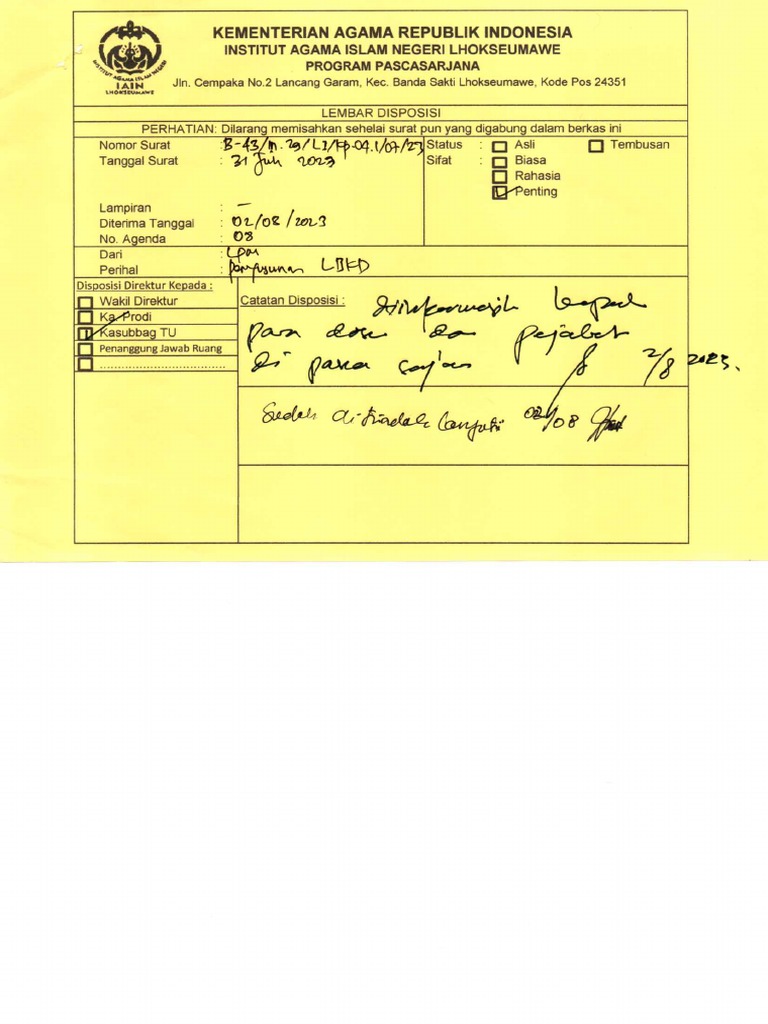 KEMENTERIAN AGAMA REPUBLIK INDONESIA
INSTITUT AGAMA ISLAM NEGERI LHOKSEUMAWE
PROGRAM PASCASARJANA
Jln. Cempaka No.2 Lancang Garam, Kec. Banda Sakti Lhokseumawe, Kode Pos 24351
INSTITUT AGAMA ISLAM NEGERI
IAIN
LHOKSEUMAWE
LEMBAR DISPOSISI
PERHATIAN: Dilarang memisahkan sehelai surat pun yang digabung dalam berkas ini
Nomor Surat : B-43/In.29/L1/Kp.04.1/07/23
Tanggal Surat : 31 Juli 2023
Lampiran : -
Diterima Tanggal : 02/08/2023
No. Agenda : 08
Status : Asli Tembusan
Sifat : Biasa
Rahasia
Penting
Dari : LPM
Perihal : Penyusunan LBKD
Disposisi Direktur Kepada :
Wakil Direktur
Ka. Prodi
Kasubbag TU
Penanggung Jawab Ruang
....................................
Catatan Disposisi : diinformasik kepada
para dosen dan pejabat
di pasca sarjana 2/8 2023.
Sudah di tindak lanjuti 02/08